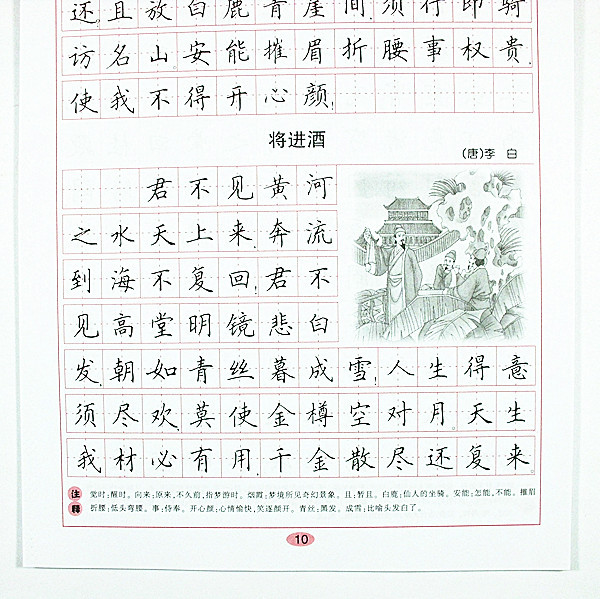 还且放白鹿青崖间,须行即骑
访名山。安能摧眉折腰事权贵,
使我不得开心颜!
将进酒
(唐)李 白
君不见黄河
之水天上来,奔流
到海不复回!君不
见高堂明镜悲白
发,朝如青丝暮成雪!人生得意
须尽欢,莫使金樽空对月。天生
我材必有用,千金散尽还复来。
注释
觉时:醒时。向来:原来,不久前,指梦游时。烟霞:梦境所见奇幻景象。且:暂且。白鹿:仙人的坐骑。安能:怎能,不能。摧眉
折腰:低头弯腰。事:侍奉。开心颜:心情愉快,笑逐颜开。青丝:黑发。成雪:比喻头发白了。
10